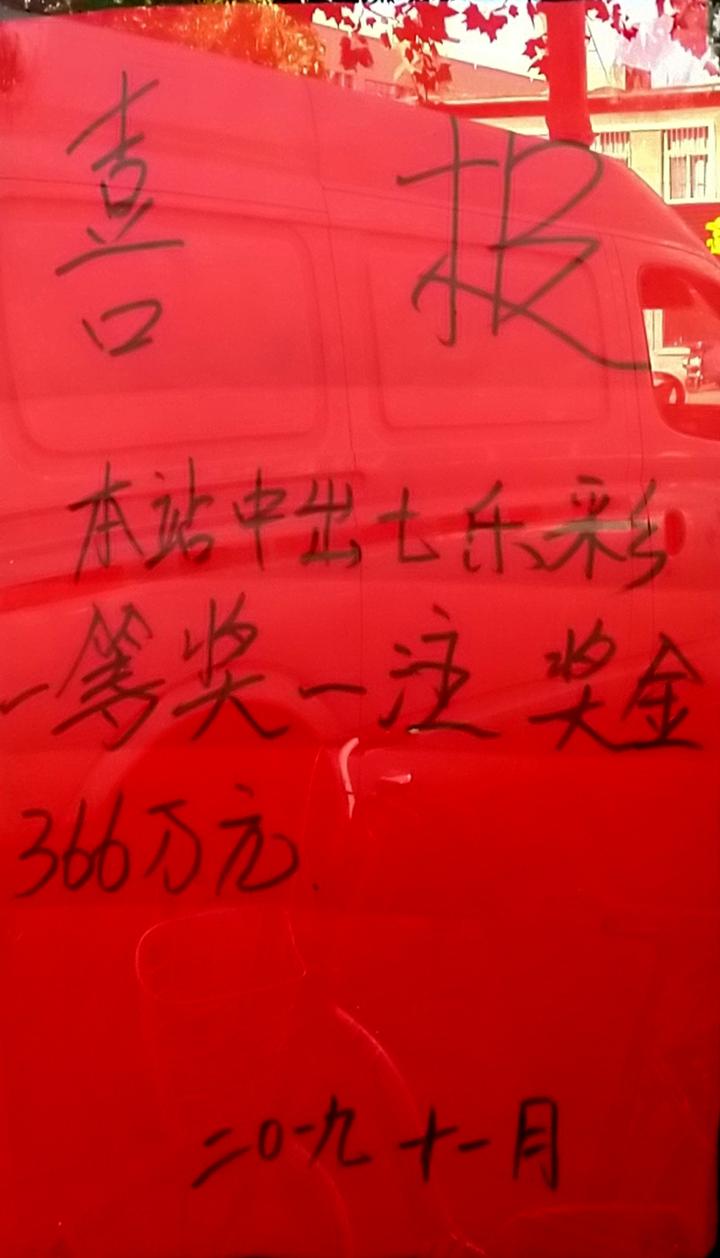 喜报
本站中出七乐彩
一等奖一注 奖金
366万元.
二0一九 十一月